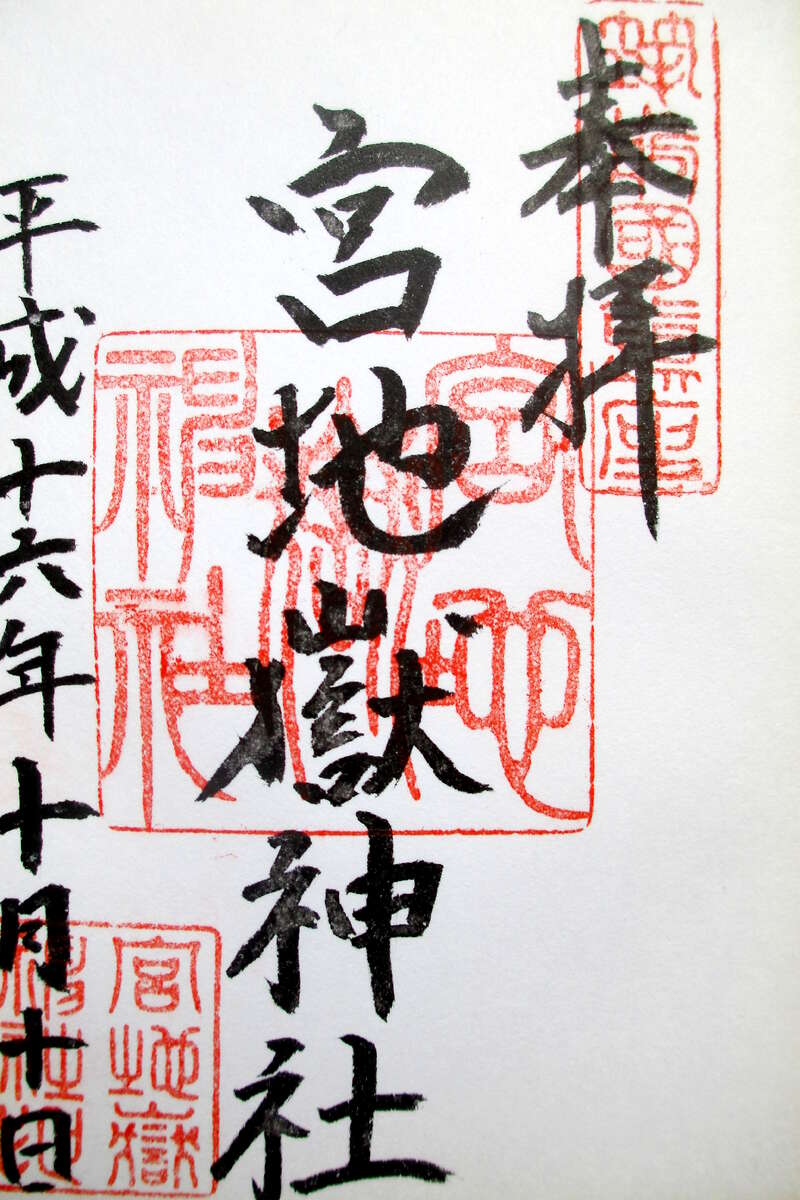 奉拝
宮地嶽神社
平成十六年十月十日
宮地嶽
神社
宮地嶽